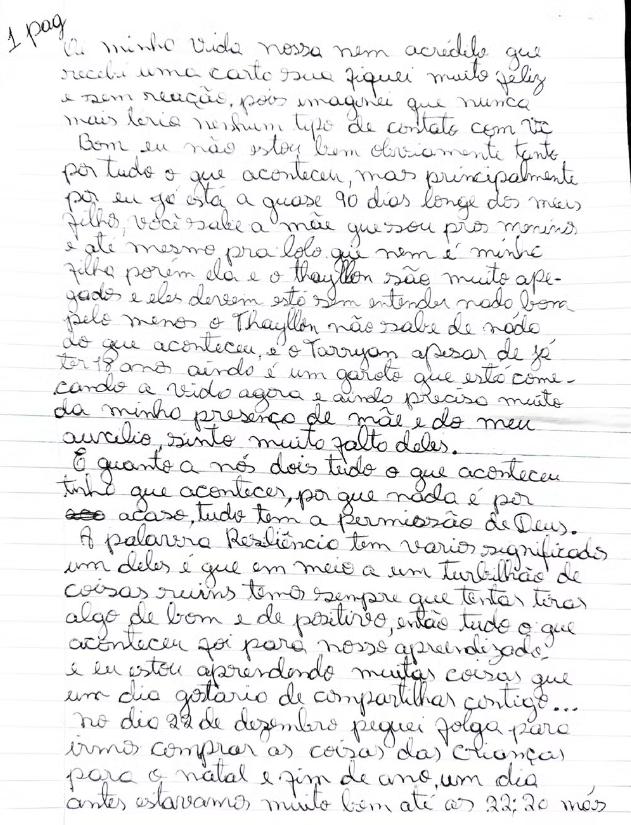 1 pag
Oi minha vida nossa nem acredito que
recebi uma carta sua fiquei muito feliz
e sem reação, pois imaginei que nunca
mais teria nenhum tipo de contato com vc
Bom eu não estou bem obviamente tanto
por tudo o que aconteceu, mas principalmente
por eu já está a quase 90 dias longe dos meus
filho, você sabe a mãe que sou pros meninos
e até mesmo pra lolo que nem é minha
filha porém ela e o Thayllon são muito ape-
gados e eles devem está sem entender nada bom
pelo menos o Thayllon não sabe de nada
do que aconteceu, e o Tarryan apesar de já
ter 18 anos ainda é um garoto que está come-
çando a vida agora e ainda precisa muito
da minha presença de mãe e do meu
auxilio, sinto muito falta deles.
E quanto a nós dois tudo o que aconteceu
tinha que acontecer, por que nada é por
acaso, tudo tem a permissão de Deus.
A palavra Resiliência tem varios significados
um deles é que em meio a um turbilhão de
coisas ruins temos sempre que tentar tirar
algo de bom e de positivo, então tudo o que
aconteceu foi para nosso aprendizado.
e eu estou aprendendo muitas coisas que
um dia gostaria de compartilhar contigo...
no dia 22 de dezembro peguei folga para
irmos comprar as coisas das crianças
para o natal e fim de ano, um dia
antes estavamos muito bem até as 22:20 mas